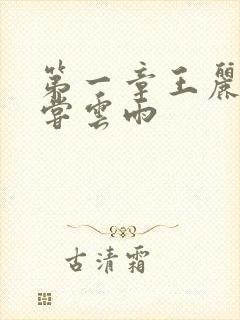 第一章王麗
嘗雲雨
古清霜